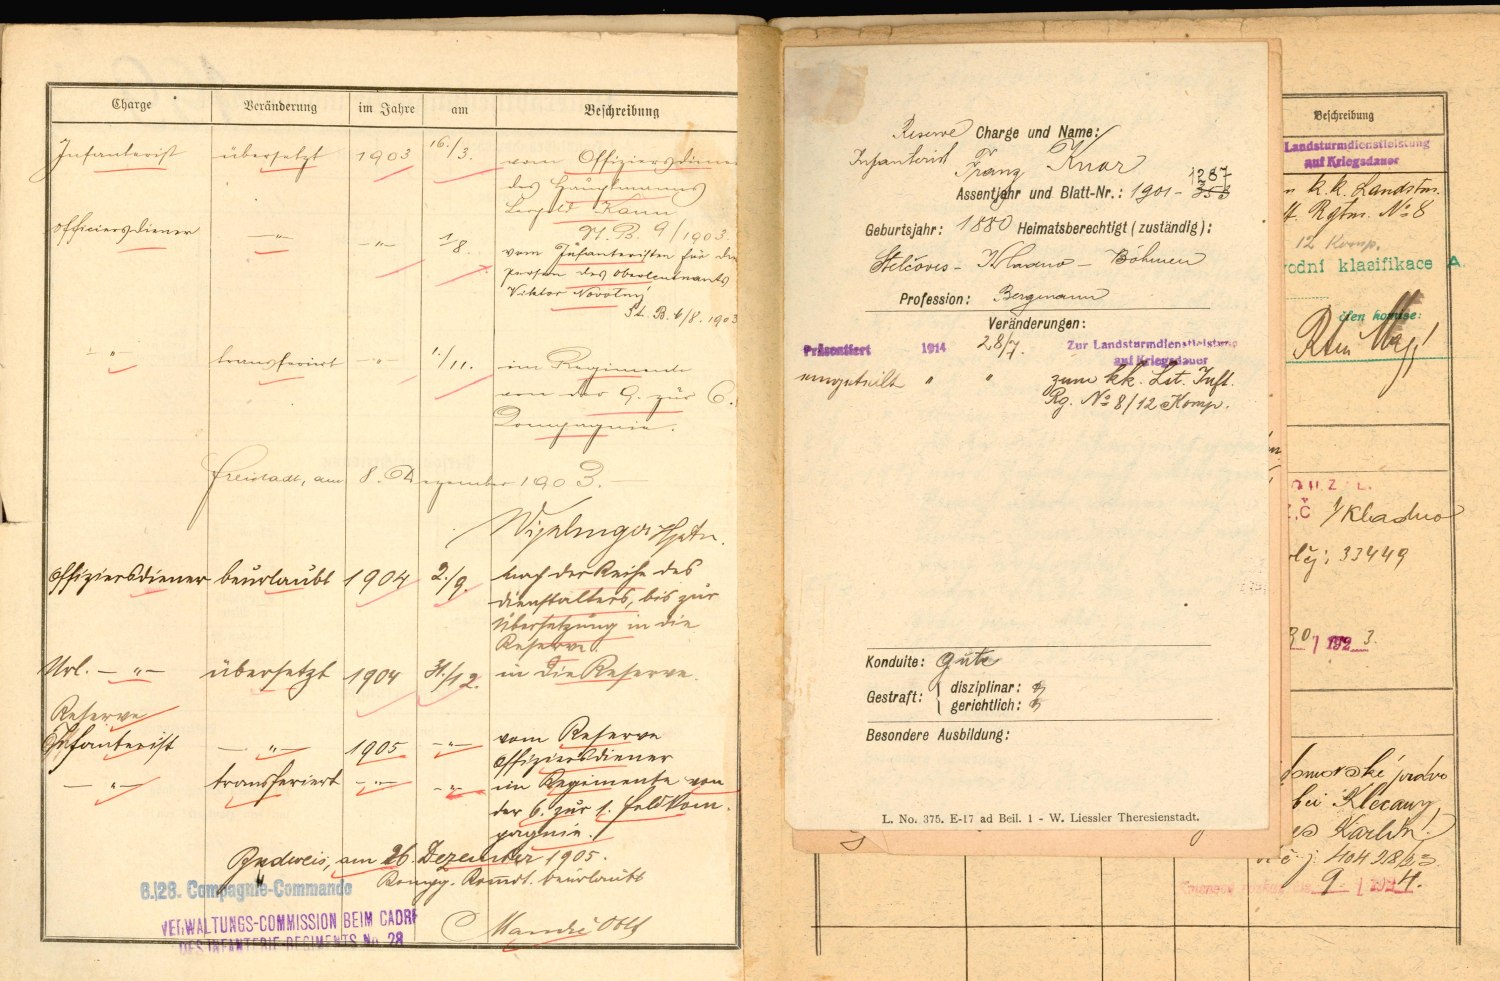 Charge Veränderung im Jahre am Beschreibung
Infanterist übersetzt 1903 16./3. vom Offiziersdiener
des Hauptmanns
Leopold Kann
St. B. 9/1903.
Officiersdiener —"— —"— 1/8. vom Infanteristen für die
person des Oberleutnants
Viktor Novotný
St. B. 6/8. 1903
—"— transferirt —"— 1./11. im Regimente
von der 9. zur 6.
Compagnie.
Freistadt, am 8. Dezember 1903.
Offiziersdiener beurlaubt 1904 2./9. nach der Reihe des
Dienstalters, bis zur
Übersetzung in die
Reserve.
Url. —"— übersetzt 1904 31./12. in die Reserve.
Reserve
Infanterist —"— 1905 —"— vom Reserve
Offiziersdiener
—"— transferiert —"— —"— im Regimente von
der 6. zur 1. Feldkom-
pagnie.
Budweis, am 26. Dezember 1905.
Kompg. Komdt. beurlaubt
6./28. Compagnie-Commando
VERWALTUNGS-COMMISSION BEIM CADRE
DES INFANTERIE-REGIMENTS No. 28
Reserve Charge und Name:
Infanterist Franz Knor
1287
Assentjahr und Blatt-Nr.: 1901 - 353
Geburtsjahr: 1880 Heimatsberechtigt (zuständig):
Stelčoves - Kladno - Böhmen
Profession: Bergmann
Veränderungen:
Präsentiert 1914 28/7. Zur Landsturmdienstleistung
auf Kriegsdauer
eingeteilt " " zum kk. Lst. Inft.
Rg. No 8/12 Komp.
Konduite: Gute
Gestraft: disziplinar:
gerichtlich:
Besondere Ausbildung:
L. No. 375. E-17 ad Beil. 1 - W. Liessler Theresienstadt.
Beschreibung
Landsturmdienstleistung
auf Kriegsdauer
k. k. Landstm.
Rgtm. No 8
12 Komp.
klasifikace A
Kladno
33449
30/ 1923.
bei Klecany
Karlin
404 28/23.
9 / 1924.